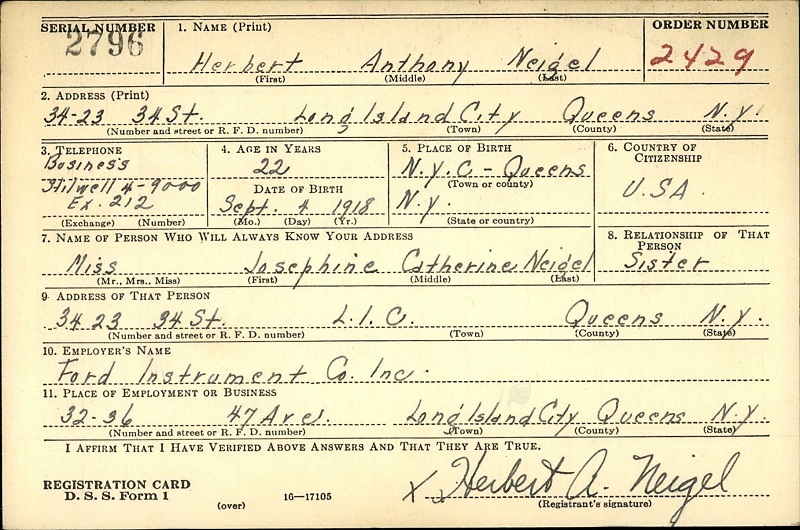 SERIAL NUMBER 1. NAME (Print) ORDER NUMBER
2796 Herbert Anthony Neigel 2429
(First) (Middle) (Last)
2. ADDRESS (Print)
34-23 34 St. Long Island City Queens N.Y.
(Number and street or R. F. D. number) (Town) (County) (State)
3. TELEPHONE 4. AGE IN YEARS 5. PLACE OF BIRTH 6. COUNTRY OF CITIZENSHIP
Business 22 N.Y.C - Queens
(Town or county)
Stilwell 4-9000 DATE OF BIRTH U.S.A.
Ex. 212 Sept. 4 1918 N.Y.
(Exchange) (Number) (Mo.) (Day) (Yr.) (State or country)
7. NAME OF PERSON WHO WILL ALWAYS KNOW YOUR ADDRESS 8. RELATIONSHIP OF THAT PERSON
Miss Josephine Catherine Neigel Sister
(Mr., Mrs., Miss) (First) (Middle) (Last)
9. ADDRESS OF THAT PERSON
34 23 34 St. L.I.C. Queens N.Y.
(Number and street or R. F. D. number) (Town) (County) (State)
10. EMPLOYER'S NAME
Ford Instrument Co. Inc.
11. PLACE OF EMPLOYMENT OR BUSINESS
32-36 47 Ave. Long Island City Queens N.Y.
(Number and street or R. F. D. number) (Town) (County) (State)
I AFFIRM THAT I HAVE VERIFIED ABOVE ANSWERS AND THAT THEY ARE TRUE.
REGISTRATION CARD
D. S. S. Form 1 (over) 16—17105 X Herbert A. Neigel
(Registrant's signature)